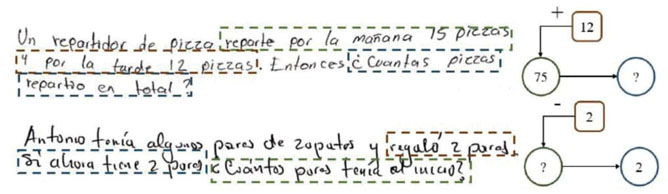 Un repartidor de pizza reparte por la mañana 75 pizzas
y por la tarde 12 pizzas. Entonces ¿Cuantas pizzas
repartio en total?
+
12
75
?
Antonio tenía algunos pares de zapatos y regaló 2 pares.
Si ahora tiene 2 pares ¿Cuántos pares tenía al inicio?
-
2
?
2